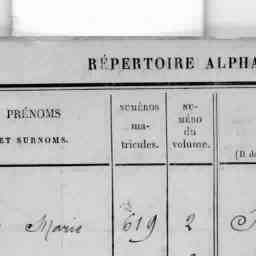 RÉPERTOIRE ALPHA
PRÉNOMS
ET SURNOMS.
NUMÉROS
ma-
tricules.
NU-
MÉRO
du
volume.
(D de
Marie 619 2